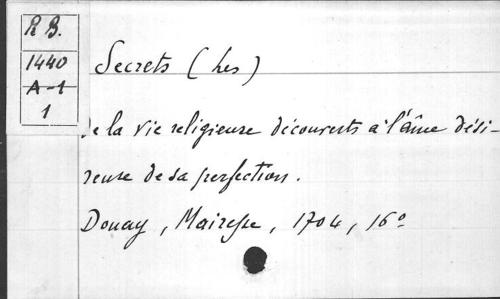 R B.
1440
A-1
1
Secrets (Les)
de la vie religieuse découverts à l'âme dési-
reuse de sa perfection.
Douay, Mairesse, 1704, 16°